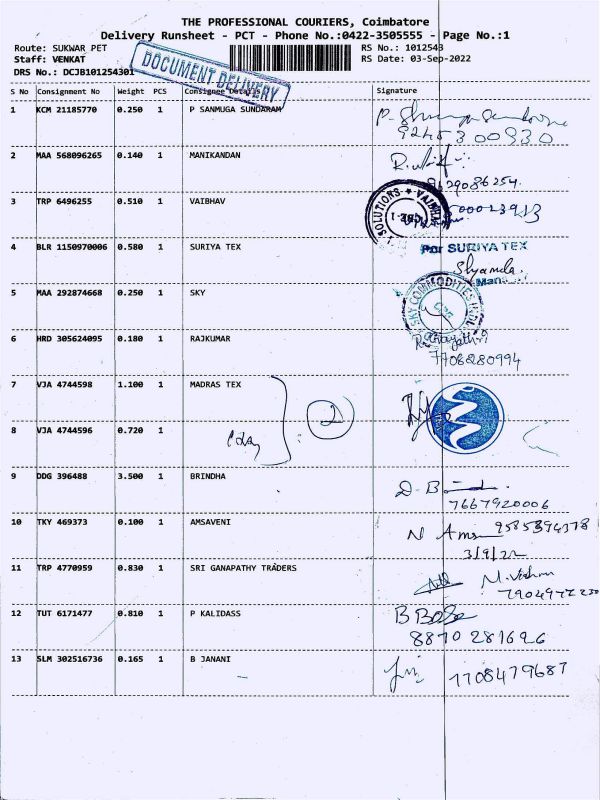 THE PROFESSIONAL COURIERS, Coimbatore
Delivery Runsheet - PCT - Phone No.:0422-3505555 - Page No.:1
Route: SUKWAR PET RS No.: 1012543
Staff: VENKAT RS Date: 03-Sep-2022
DRS No.: DCJB101254301
DOCUMENT DELIVERY
S No Consignment No Weight PCS Consignee Details Signature
1 KCM 21185770 0.250 1 P SANMUGA SUNDARAM
2 MAA 568096265 0.140 1 MANIKANDAN
9629086254
3 TRP 6496255 0.510 1 VAIBHAV
SOLUTIONS * VAIBHAV
4 BLR 1150970006 0.580 1 SURIYA TEX For SURIYA TEX
Shyamala
5 MAA 292874668 0.250 1 SKY
SKY COMMODITIES INDIA
6 HRD 305624095 0.180 1 RAJKUMAR
7708280994
7 VJA 4744598 1.100 1 MADRAS TEX
2
8 VJA 4744596 0.720 1
9 DDG 396488 3.500 1 BRINDHA
7667920006
10 TKY 469373 0.100 1 AMSAVENI N Ams 9585394378
3/9/22
11 TRP 4770959 0.830 1 SRI GANAPATHY TRADERS
7904972230
12 TUT 6171477 0.810 1 P KALIDASS B Bose
8870281696
13 SLM 302516736 0.165 1 B JANANI 7708479687